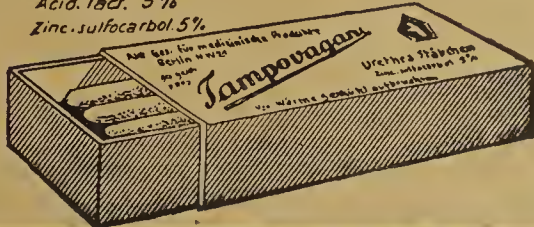 Acid. lact. 5%
Zinc. sulfocarbol. 5%
Akt Ges. für medizinische Produkte
Berlin N W 21
Tampovagan
Urethra Stäbchen
Zinc. sulfocarbol 5%
Vor Wärme geschützt aufbewahren